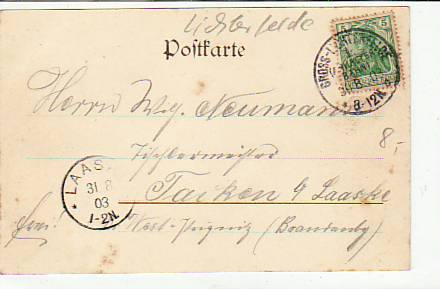 Lichterfelde
Postkarte
5 5
GROSS-LICHTERFELDE
8-12N
Herrn Wg. Neumann
8,-
Tischlermeister
LAAS
31 8
03
1-2N
Tacken b/ Laaske
frei! West-Prignitz (Brandenbg)